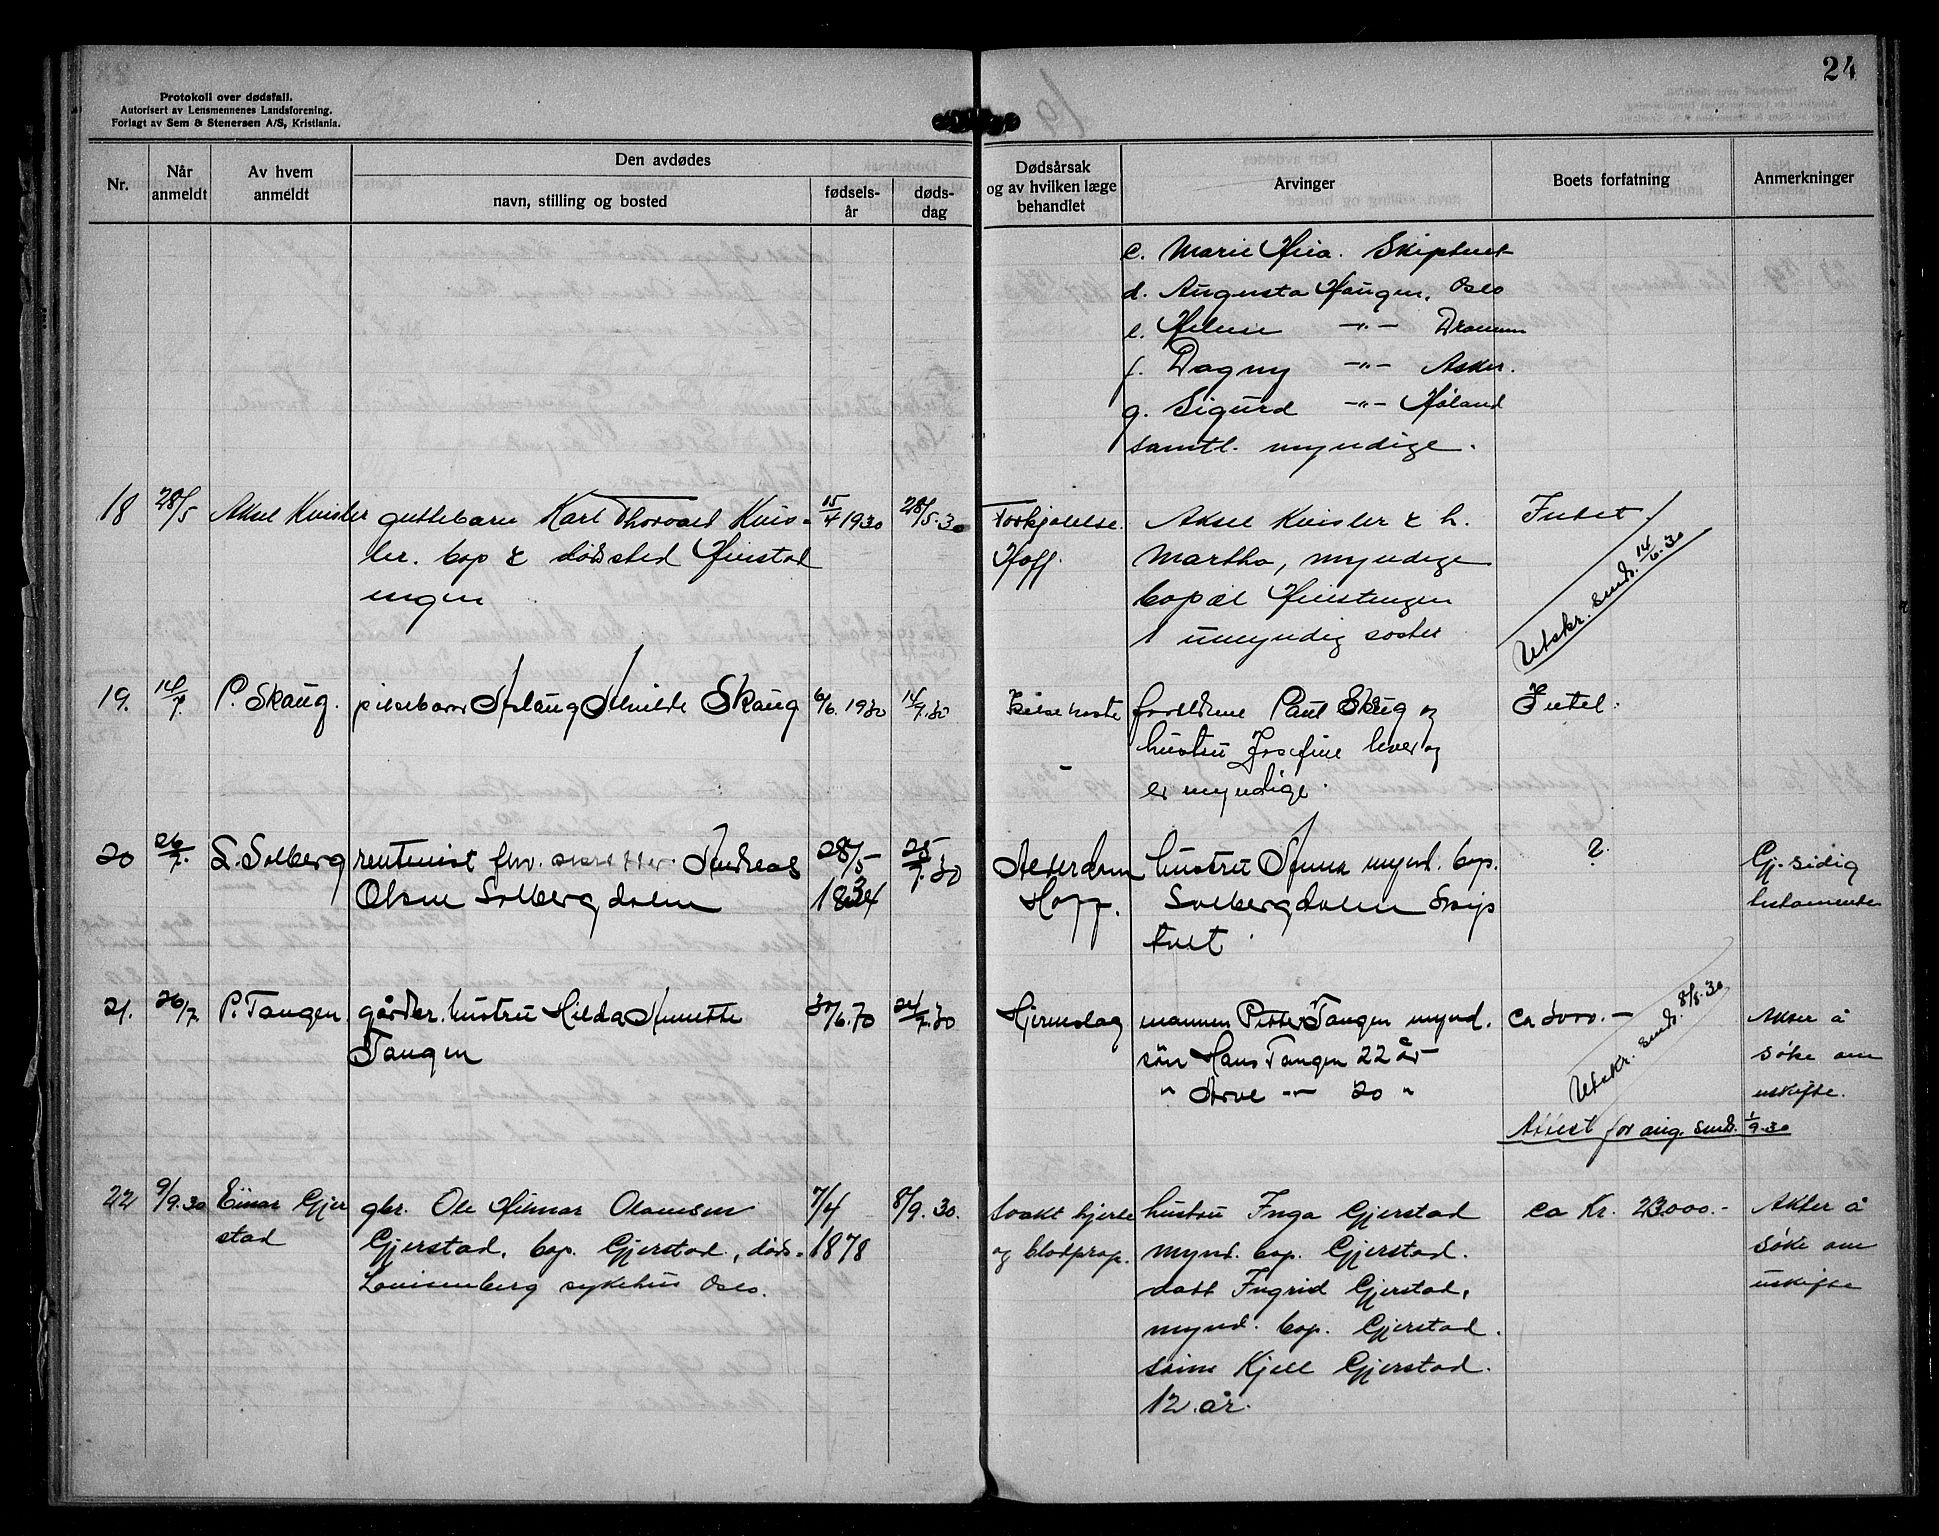 24
Protokoll over dødsfall.
Autorisert av Lensmennenes Landsforening.
Forlagt av Sem & Stenersen A/S, Kristiania.
Nr.
Når anmeldt
Av hvem anmeldt
Den avdødes
navn, stilling og bosted
fødsels-år
døds-dag
Dødsårsak og av hvilken læge behandlet
Arvinger
Boets forfatning
Anmerkninger
c. Marie Skiptvet
d. Augusta Haugen, Oslo
e. Helene -"- Drammen
f. Dagny -"- Asker.
g. Sigurd -"- Høland
samtl. myndige.
18 28/5 Aksel guttebarn Karl Thorvald
bop & dødsted
ingen
15/4 1930 28/5.30
Forkjølelse.
Hoff.
Aksel & h.
Martha, myndige
bopæl
1 umyndig søster
Intet.
Utskr. send. 14/6.30
19. 14/7 P. Skaug. pikebarn Aslaug Alvilde Skaug 6/6.1930 14/7.30
Kikhoste
foreldrene Paul Skaug og
hustru Josefine lever og
er myndige.
Intet.
20 26/7. L. Solberg rentenist fhv. Andreas
Olsen Solbergdalen
28/5 1834 25/7.30
Alderdom
Hoff.
hustru Anna mynd. bop.
Solbergdalen Skip
tvet.
?
Gj.sidig
testamente
21. 26/7. P. Tangen. gårdbr. hustru Hilda Annette
Tangen
30/6.70 24/7.30
Hjerneslag
mannen Petter Tangen mynd.
sön Hans Tangen 22 år
" Arve -"- 20 "
ca 3000.-
Utskr. send. 8/8.30
Akter å
søke om
uskifte.
Attest for aug. send. 1/9.30
22 9/9.30 Einar Gjer
stad
gbr. Ole Hilmar Olaussen
Gjerstad, bop. Gjerstad, døds.
Louisenberg sykehus Oslo.
7/4 1878 8/9.30.
Svakt hjerte
og blodprop.
hustru Inga Gjerstad
mynd. bop. Gjerstad.
datt Ingrid Gjerstad,
mynd. bop. Gjerstad.
sönn Kjell Gjerstad.
12 år.
ca Kr. 23000.-
Akter å
søke om
uskifte